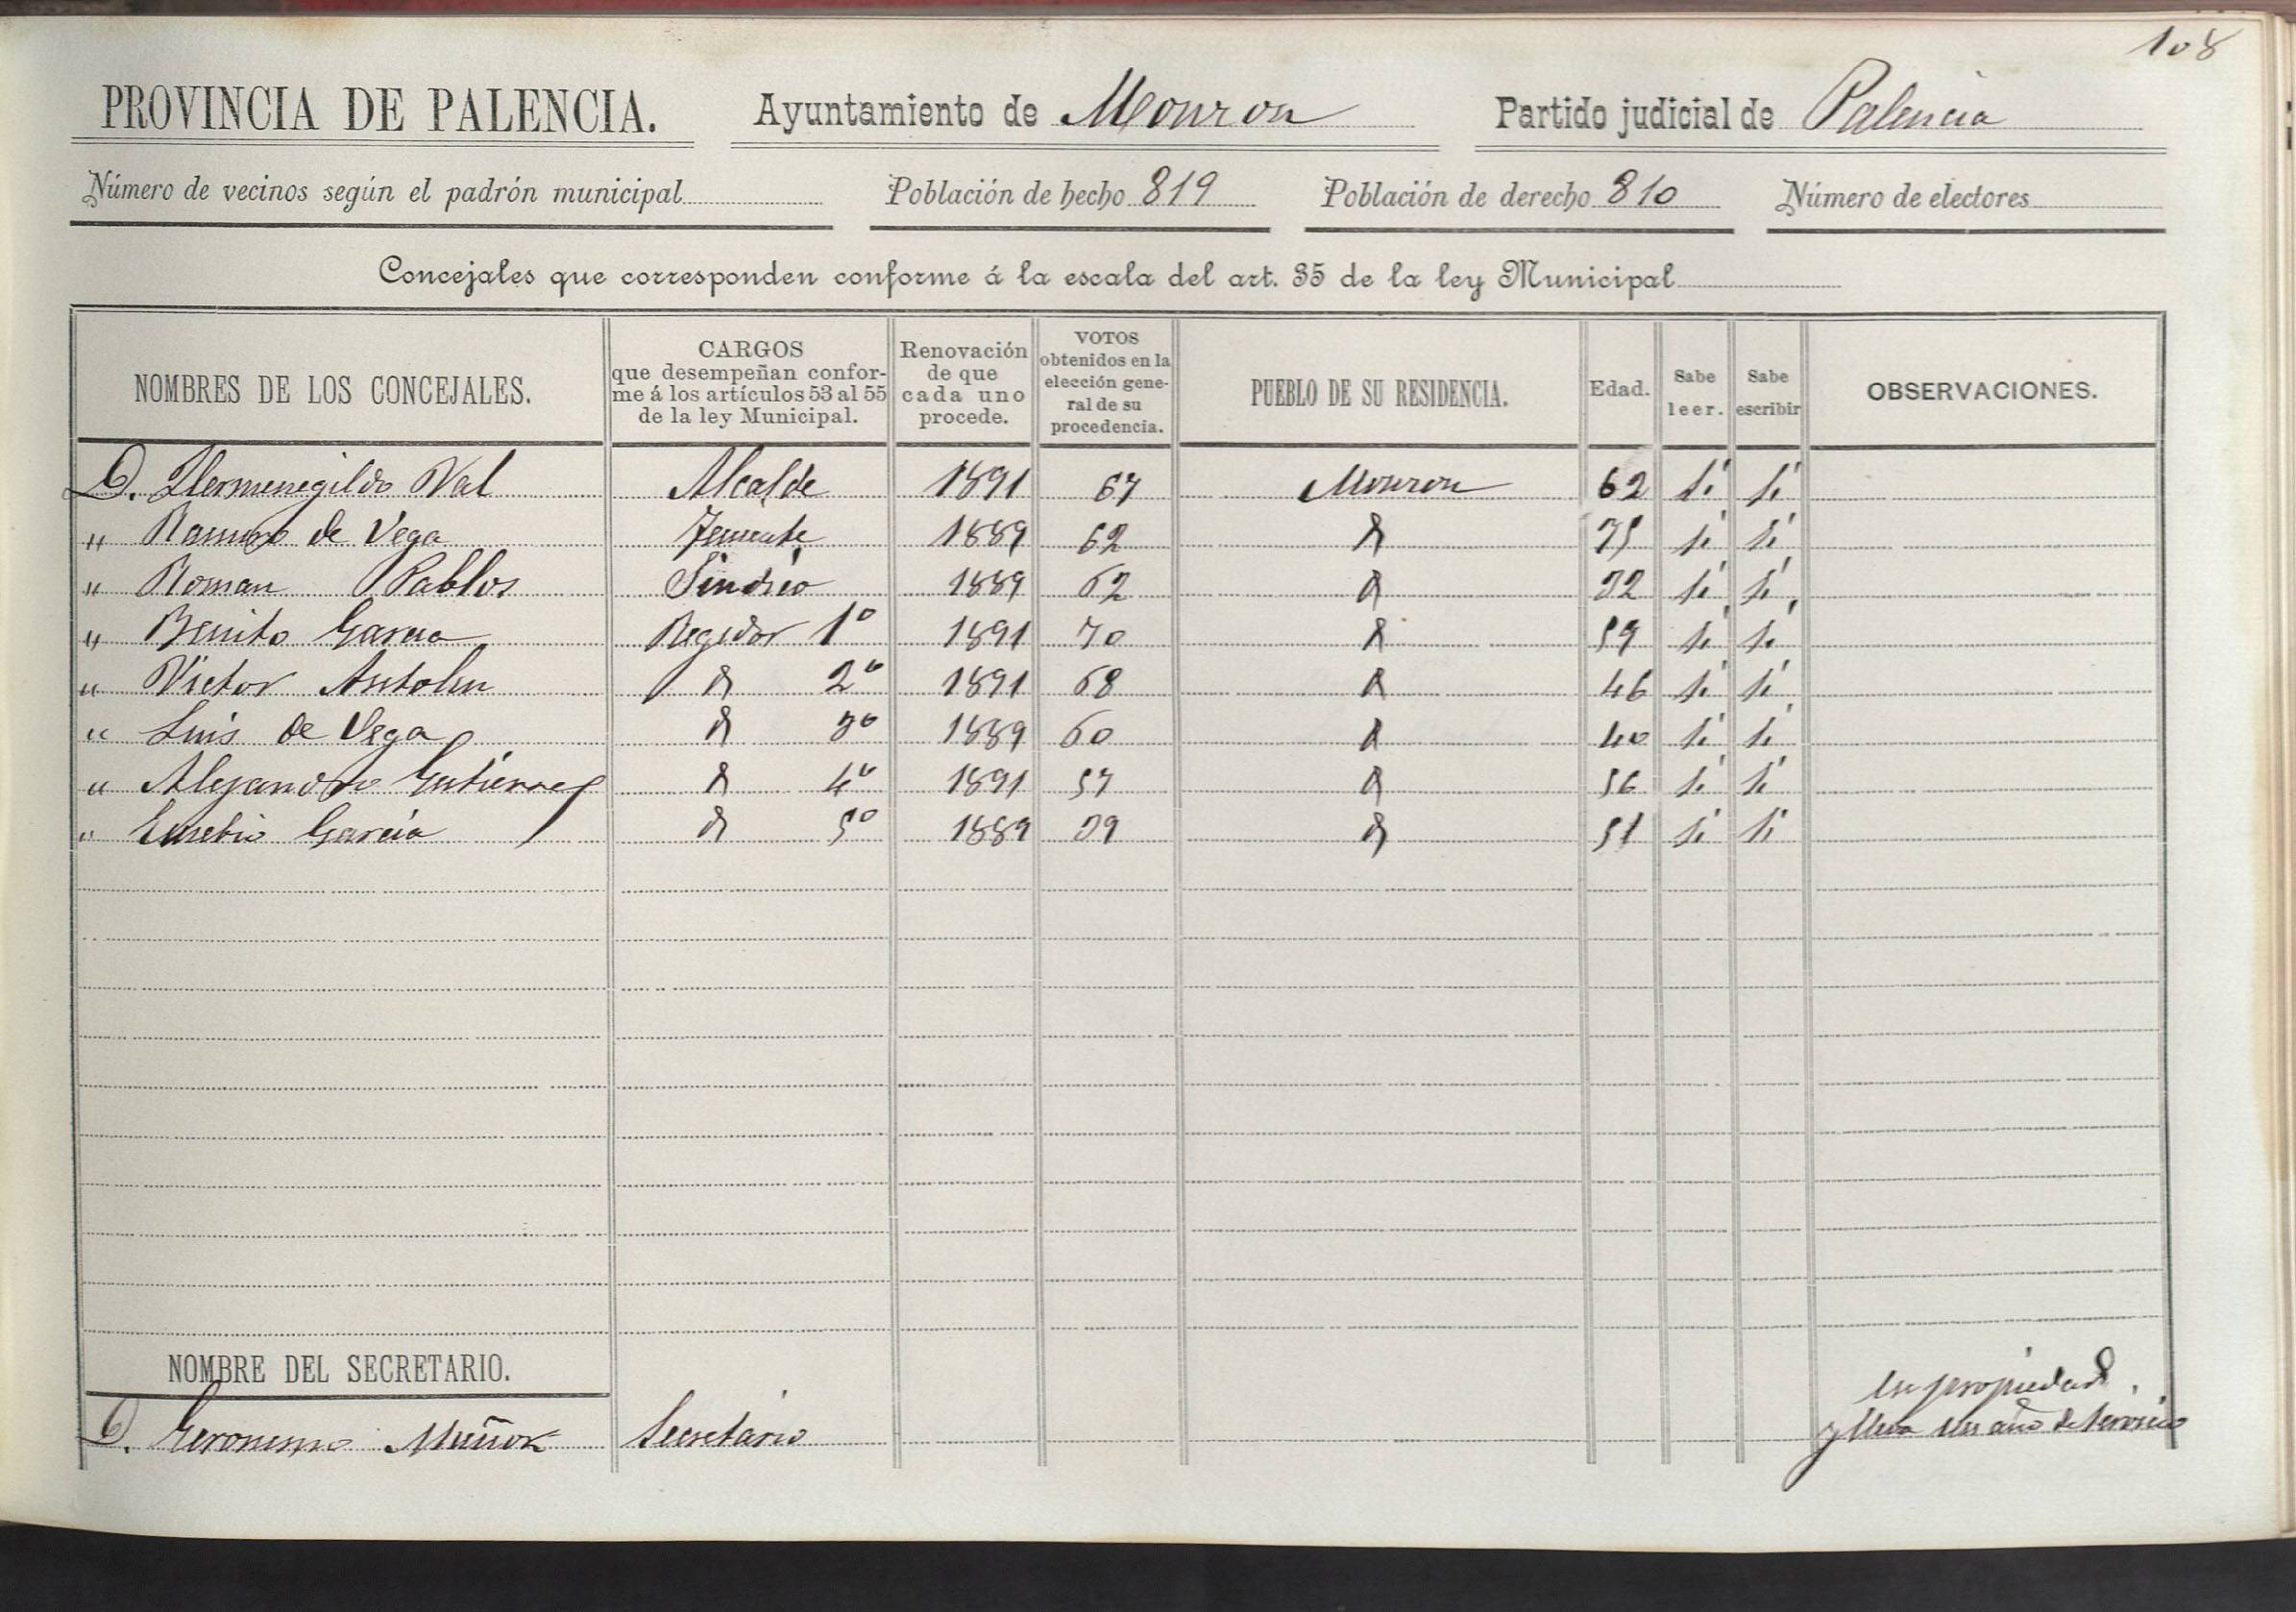 108
PROVINCIA DE PALENCIA. Ayuntamiento de Monzon Partido judicial de Palencia
Número de vecinos según el padrón municipal Población de hecho 819 Población de derecho 810 Número de electores
Concejales que corresponden conforme á la escala del art. 35 de la ley Municipal
NOMBRES DE LOS CONCEJALES. CARGOS que desempeñan confor-me á los artículos 53 al 55 de la ley Municipal. Renovación de que cada uno procede. VOTOS obtenidos en la elección gene-ral de su procedencia. PUEBLO DE SU RESIDENCIA. Edad. Sabe leer. Sabe escribir OBSERVACIONES.
D. Hermenegildo Val Alcalde 1891 67 Monzon 62 si si
" Ramiro de Vega Teniente 1889 62 id 35 si si
" Roman Pablos Sindico 1889 62 id 32 si si
" Benito Garcia Regidor 1º 1891 70 id 59 si si
" Victor Antolin id 2º 1891 68 id 46 si si
" Luis de Vega id 3º 1889 60 id 40 si si
" Alejandro Gutierrez id 4º 1891 57 id 56 si si
" Eusebio Garcia id 5º 1889 39 id 51 si si
NOMBRE DEL SECRETARIO.
en propiedad
D. Geronimo Muñoz Secretario y lleva un año de servicio